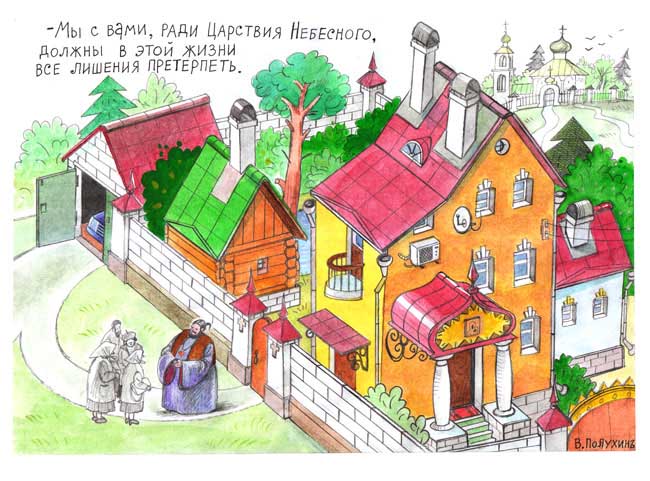 -Мы с вами, ради Царствия Небесного,
должны в этой жизни
все лишения претерпеть.
В. Полухинъ